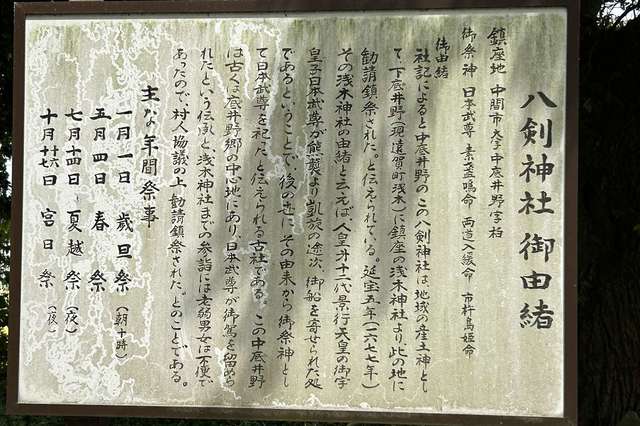 八剣神社 御由緒
鎮座地 中間市大字中底井野字裕
御祭神 日本武尊 素盞嗚命 両道入媛命 市杵島姫命
御由緒
社記によると中底井野のこの八剣神社は、地域の産土神とし
て、下底井野(現遠賀町浅木)に鎮座の浅木神社より、此の地に
勧請鎮祭された。と伝えられている。延宝五年(一六七七年)
その浅木神社の由緒と云えば、人皇第十二代景行天皇の御字
皇子日本武尊が熊襲より凱旋の途次、御船を寄せられた処
であるということで、後の世に、その由来から御祭神とし
て日本武尊を祀る。と伝えられる古社である。この中底井野
は古くは底井野郷の中心地にあり、日本武尊が御駕を留めら
れたという伝承と、浅木神社までの参詣には老弱男女は不便で
あったので、村人協議の上、勧請鎮祭された。とのことである。
主な年間祭事
一月一日 歳旦祭 (朝十時)
五月四日 春祭
七月十四日 夏越祭 (夜)
十月十六十七日 宮日祭 (夜)